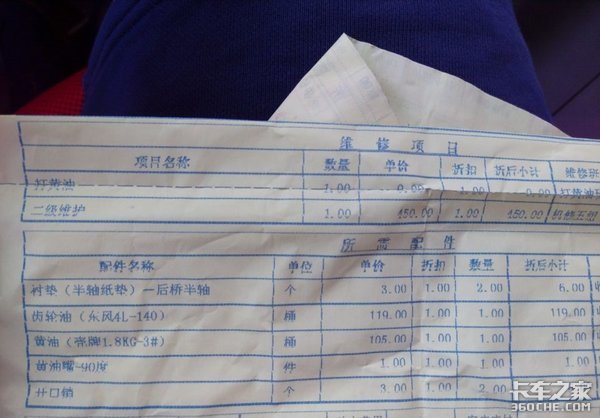 维修项目
项目名称 数量 单价 折扣 折后小计 维修班
打黄油 1.00 0.00 1.00 0.00 打黄油班
二级维护 1.00 450.00 1.00 450.00 机修五组
所需配件
配件名称 单位 单价 折扣 数量 折后小计
衬垫(半轴纸垫)一后桥半轴 个 3.00 1.00 2.00 6.00
齿轮油(东风4L-140) 桶 119.00 1.00 1.00 119.00
黄油(壳牌1.8KG-3#) 桶 105.00 1.00 1.00 105.00
黄油嘴-90度 件 1.00 1.00 1.00 1.00
开口销 个 3.00 1.00 2.00
卡车之家
360CHE.COM